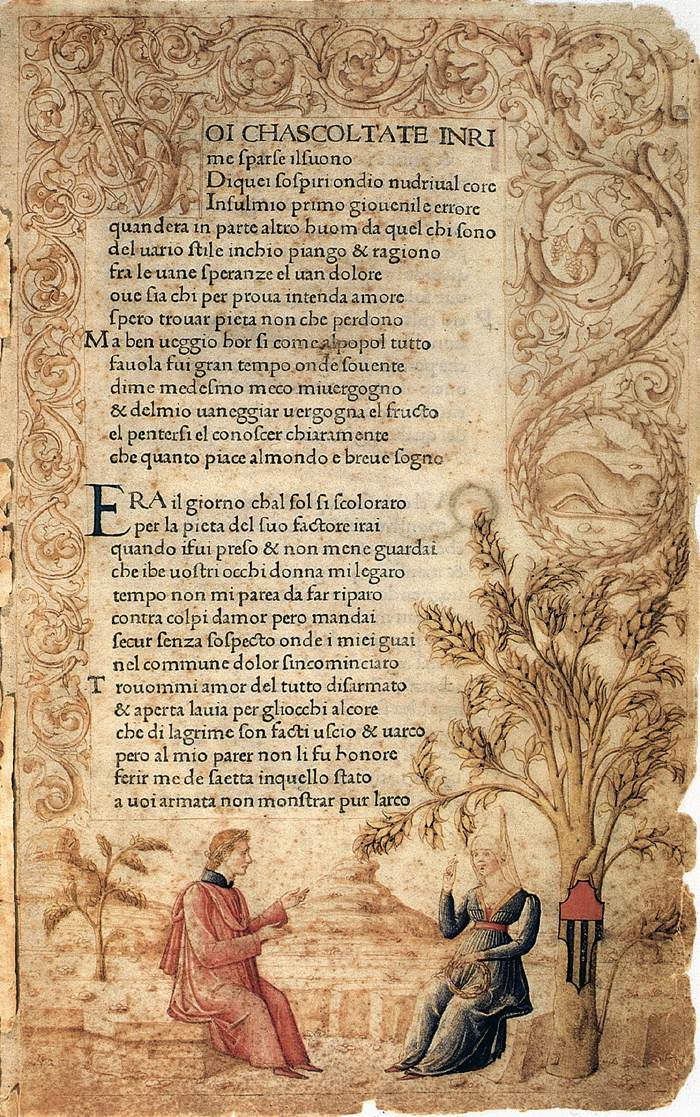 VOI CHASCOLTATE INRI
me sparse ilsuono
Di quei sospiri ondio nudrival core
Insulmio primo giouenile errore
quandera in parte altro huom da quel chi sono
del uario stile inchio piango & ragiono
fra le uane speranze el uan dolore
oue sia chi per proua intenda amore
spero trouar pieta non che perdono
Ma ben ueggio hor si come alpopol tutto
fauola fui gran tempo onde souente
dime medesmo meco miuergogno
& delmio uaneggiar uergogna el fructo
el pentersi el conoscer chiaramente
che quanto piace almondo e breue sogno
ERA il giorno chal sol si scoloraro
per la pieta del suo factore irai
quando ifui preso & non mene guardai
che ibe uostri occhi donna mi legaro
tempo non mi parea da far riparo
contra colpi damor pero mandai
secur senza sospecto onde i miei guai
nel commune dolor sincominciaro
Trouommi amor del tutto disarmato
& aperta lauia per gliocchi alcore
che di lagrime son facti uscio & uarco
pero al mio parer non li fu honore
ferir me de saetta inquello stato
a uoi armata non monstrar pur larco